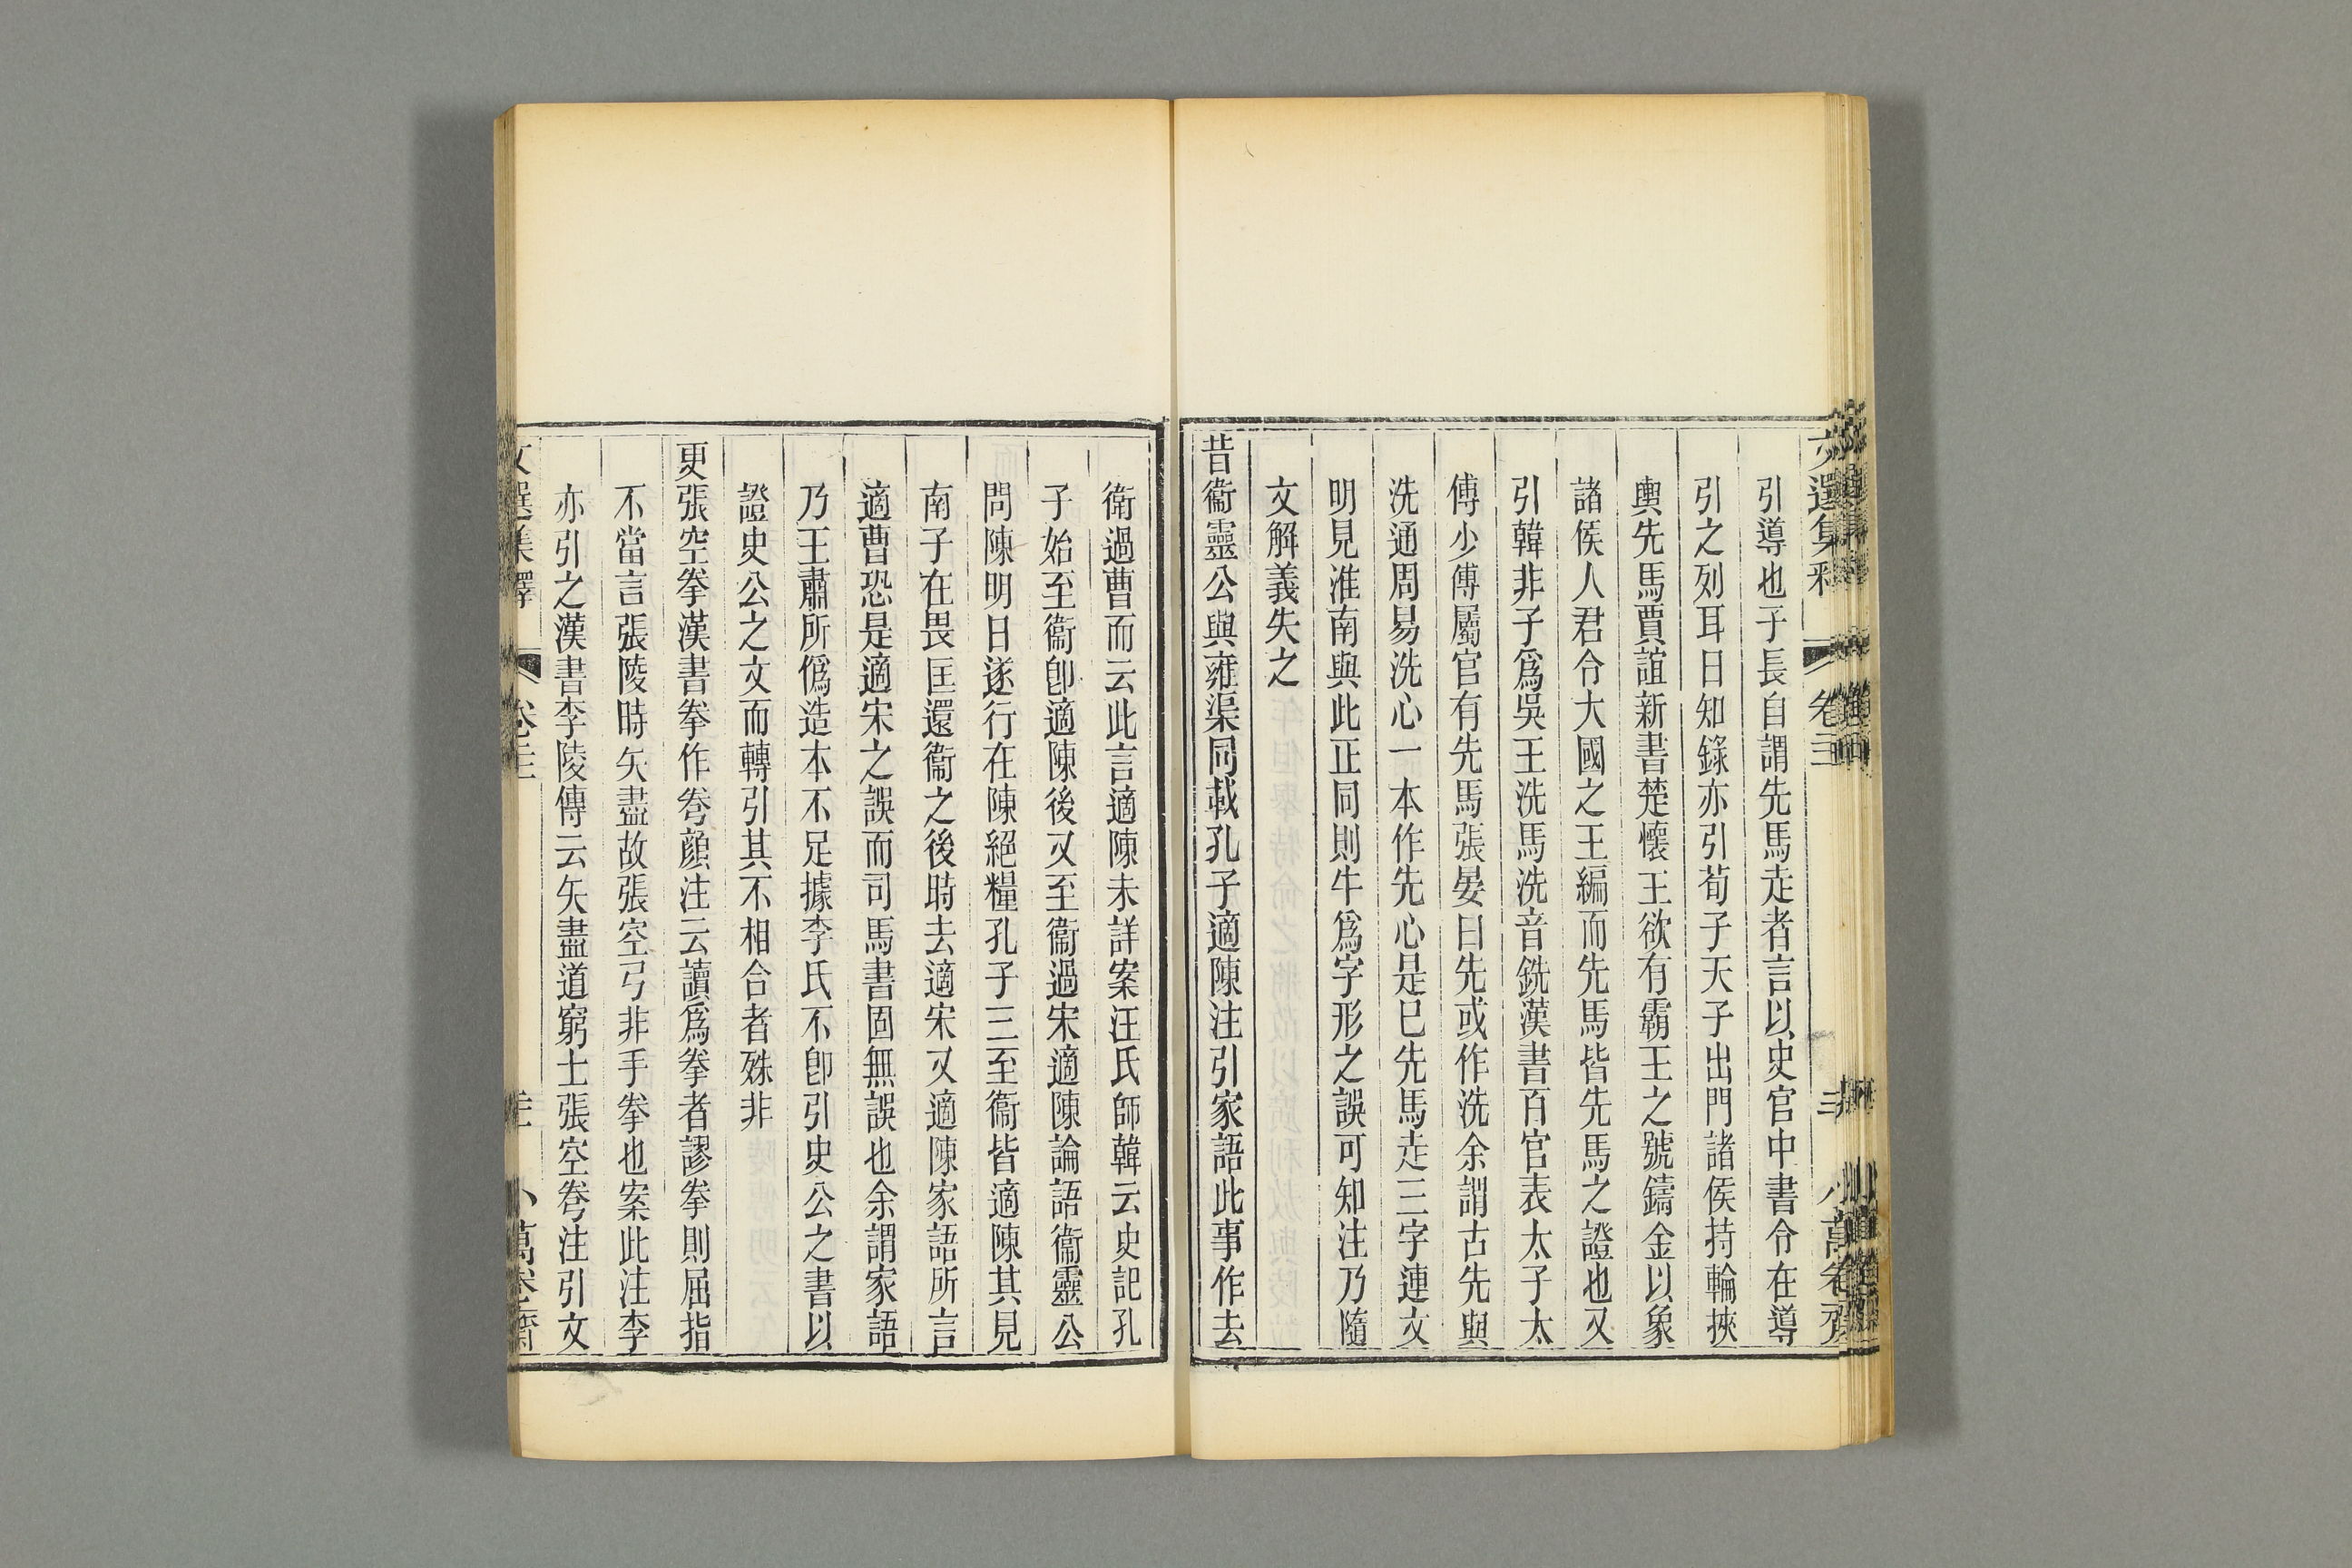 引導也子長自謂先馬走者言以史官中書令在導
引之列耳日知錄亦引荀子天子出門諸侯持輪挾
輿先馬賈誼新書楚懷王欲有霸王之號鑄金以象
諸侯人君令大國之王編而先馬皆先馬之證也又
引韓非子爲吳王洗馬洗音銑漢書百官表太子太
傅少傅屬官有先馬張晏曰先或作洗余謂古先與
洗通周易洗心一本作先心是已先馬走三字連文
明見淮南與此正同則牛爲字形之誤可知注乃隨
文解義失之
昔衞靈公與雍渠同載孔子適陳注引家語此事作去
衛過曹而云此言適陳未詳案汪氏師韓云史記孔
子始至衞卽適陳後又至衞過宋適陳論語衞靈公
問陳明日遂行在陳絕糧孔子三至衞皆適陳其見
南子在畏匡還衞之後時去適宋又適陳家語所言
適曹恐是適宋之誤而司馬書固無誤也余謂家語
乃王肅所僞造本不足據李氏不卽引史公之書以
證史公之文而轉引其不相合者殊非
更張空拳漢書拳作弮顏注云讀爲拳者謬拳則屈指
不當言張陵時矢盡故張空弓非手拳也案此注李
亦引之漢書李陵傳云矢盡道窮士張空弮注引文
文選集釋